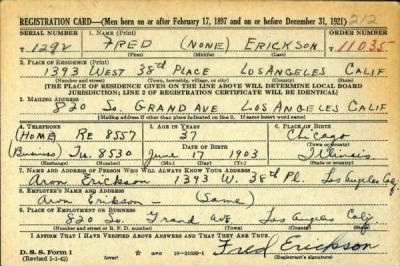 REGISTRATION CARD—(Men born on or after February 17, 1897 and on or before December 31, 1921) 212
SERIAL NUMBER 1. NAME (Print) ORDER NUMBER
T 1292 FRED (NONE) ERICKSON 11035
(First) (Middle) (Last)
2. PLACE OF RESIDENCE (Print)
1393 WEST 38th PLACE LOS ANGELES CALIF
(Number and street) (Town, township, village, or city) (County) (State)
[THE PLACE OF RESIDENCE GIVEN ON THE LINE ABOVE WILL DETERMINE LOCAL BOARD
JURISDICTION; LINE 2 OF REGISTRATION CERTIFICATE WILL BE IDENTICAL]
3. MAILING ADDRESS
820 So. GRAND AVE LOS ANGELES CALIF
[Mailing address if other than place indicated on line 2. If same insert word same]
4. TELEPHONE 5. AGE IN YEARS 6. PLACE OF BIRTH
(HOME) RE 8557 37 Chicago
DATE OF BIRTH (Town or county)
(Business) Tu. 8530 June 17 1903 Illinois
(Mo.) (Day) (Yr.) (State or country)
7. NAME AND ADDRESS OF PERSON WHO WILL ALWAYS KNOW YOUR ADDRESS
Aron Erickson 1393 W. 38th Pl. Los Angeles Calif
8. EMPLOYER'S NAME AND ADDRESS
Aron Erickson - (Same)
9. PLACE OF EMPLOYMENT OR BUSINESS
820 So. Grand ave Los Angeles Calif
(Number and street or R. F. D. number) (Town) (County) (State)
I AFFIRM THAT I HAVE VERIFIED ABOVE ANSWERS AND THAT THEY ARE TRUE.
D. S. S. Form 1 GPO Fred Erickson